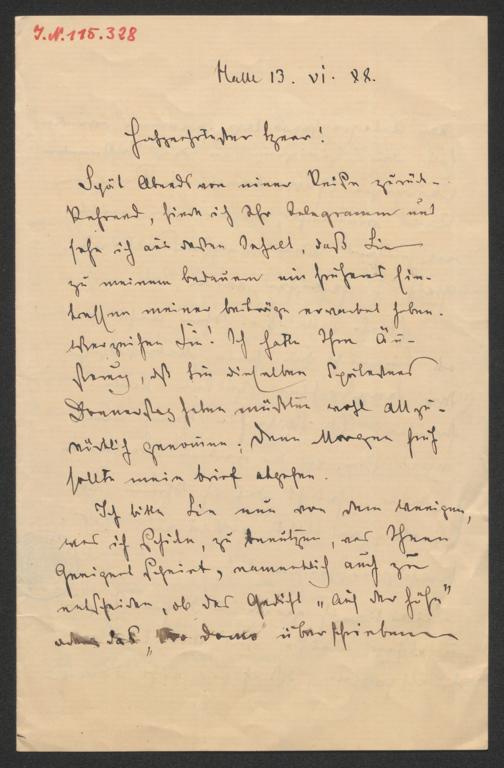 J.N. 115.328
Halle 13. VI. 88.
Hochgeehrtester Herr!
Spät Abends von einer Reise zurück-
kehrend, finde ich Ihr Telegramm und
sehe ich aus dessen Inhalt, daß Sie
zu meinem bedauern ein früheres Ein-
treffen meiner beiträge erwartet haben.
Verzeihen Sie! Ich hatte Ihre Äu-
ßerung, daß Sie dieselben spätestens
Donnerstag haben müßten wohl allzu-
wörtlich genommen; denn Morgen früh
sollte mein brief abgehen.
Ich bitte Sie nun von dem Wenigen,
was ich schicke, zu benützen, was Ihnen
Geeignet scheint, namentlich auch zu
entscheiden, ob das Gedicht „Auf der Höhe"
oder das „Pro domo" überschriebene